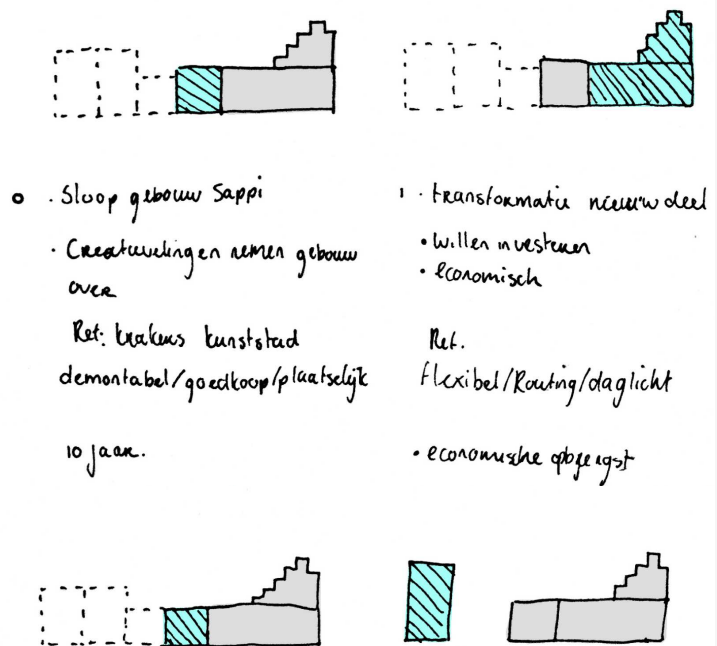 0 . Sloop gebouw Sappi
. Creatuvelingen nemen gebouw
over
Ref: krakers kunststad
demontabel/goedkoop/plaatselijk
10 jaar.
1 . transformatie nieuw deel
• willen investeren
• economisch
Ref.
flexibel/Routing/daglicht
• economische opbrengst